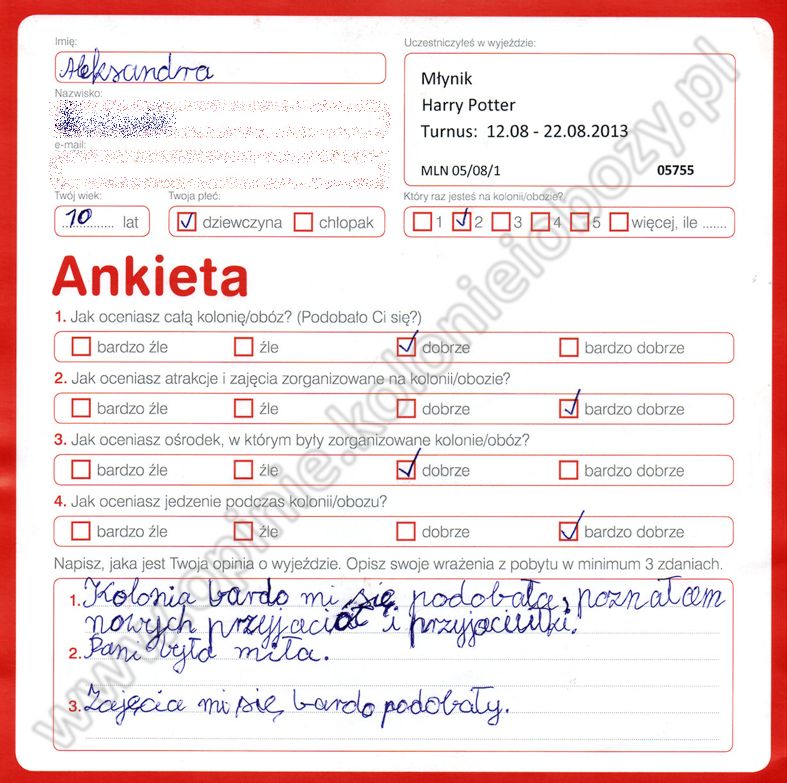 Imię:
Aleksandra
Uczestniczyłeś w wyjeździe:
Młynik
Harry Potter
Turnus: 12.08 - 22.08.2013
MLN 05/08/1 05755
Nazwisko:
e-mail:
Twój wiek: Twoja płeć: Który raz jesteś na kolonii/obozie?
10 lat dziewczyna chłopak 1 2 3 4 5 więcej, ile .......
Ankieta
1. Jak oceniasz całą kolonię/obóz? (Podobało Ci się?)
bardzo źle źle dobrze bardzo dobrze
2. Jak oceniasz atrakcje i zajęcia zorganizowane na kolonii/obozie?
bardzo źle źle dobrze bardzo dobrze
3. Jak oceniasz ośrodek, w którym były zorganizowane kolonie/obóz?
bardzo źle źle dobrze bardzo dobrze
4. Jak oceniasz jedzenie podczas kolonii/obozu?
bardzo źle źle dobrze bardzo dobrze
Napisz, jaka jest Twoja opinia o wyjeździe. Opisz swoje wrażenia z pobytu w minimum 3 zdaniach.
1. Kolonia bardo mi się podobała, poznałam
nowych i
2. Pani była miła.
3. Zajęcia mi się bardo podobały.
www.opinie.kolonieiobozy.pl